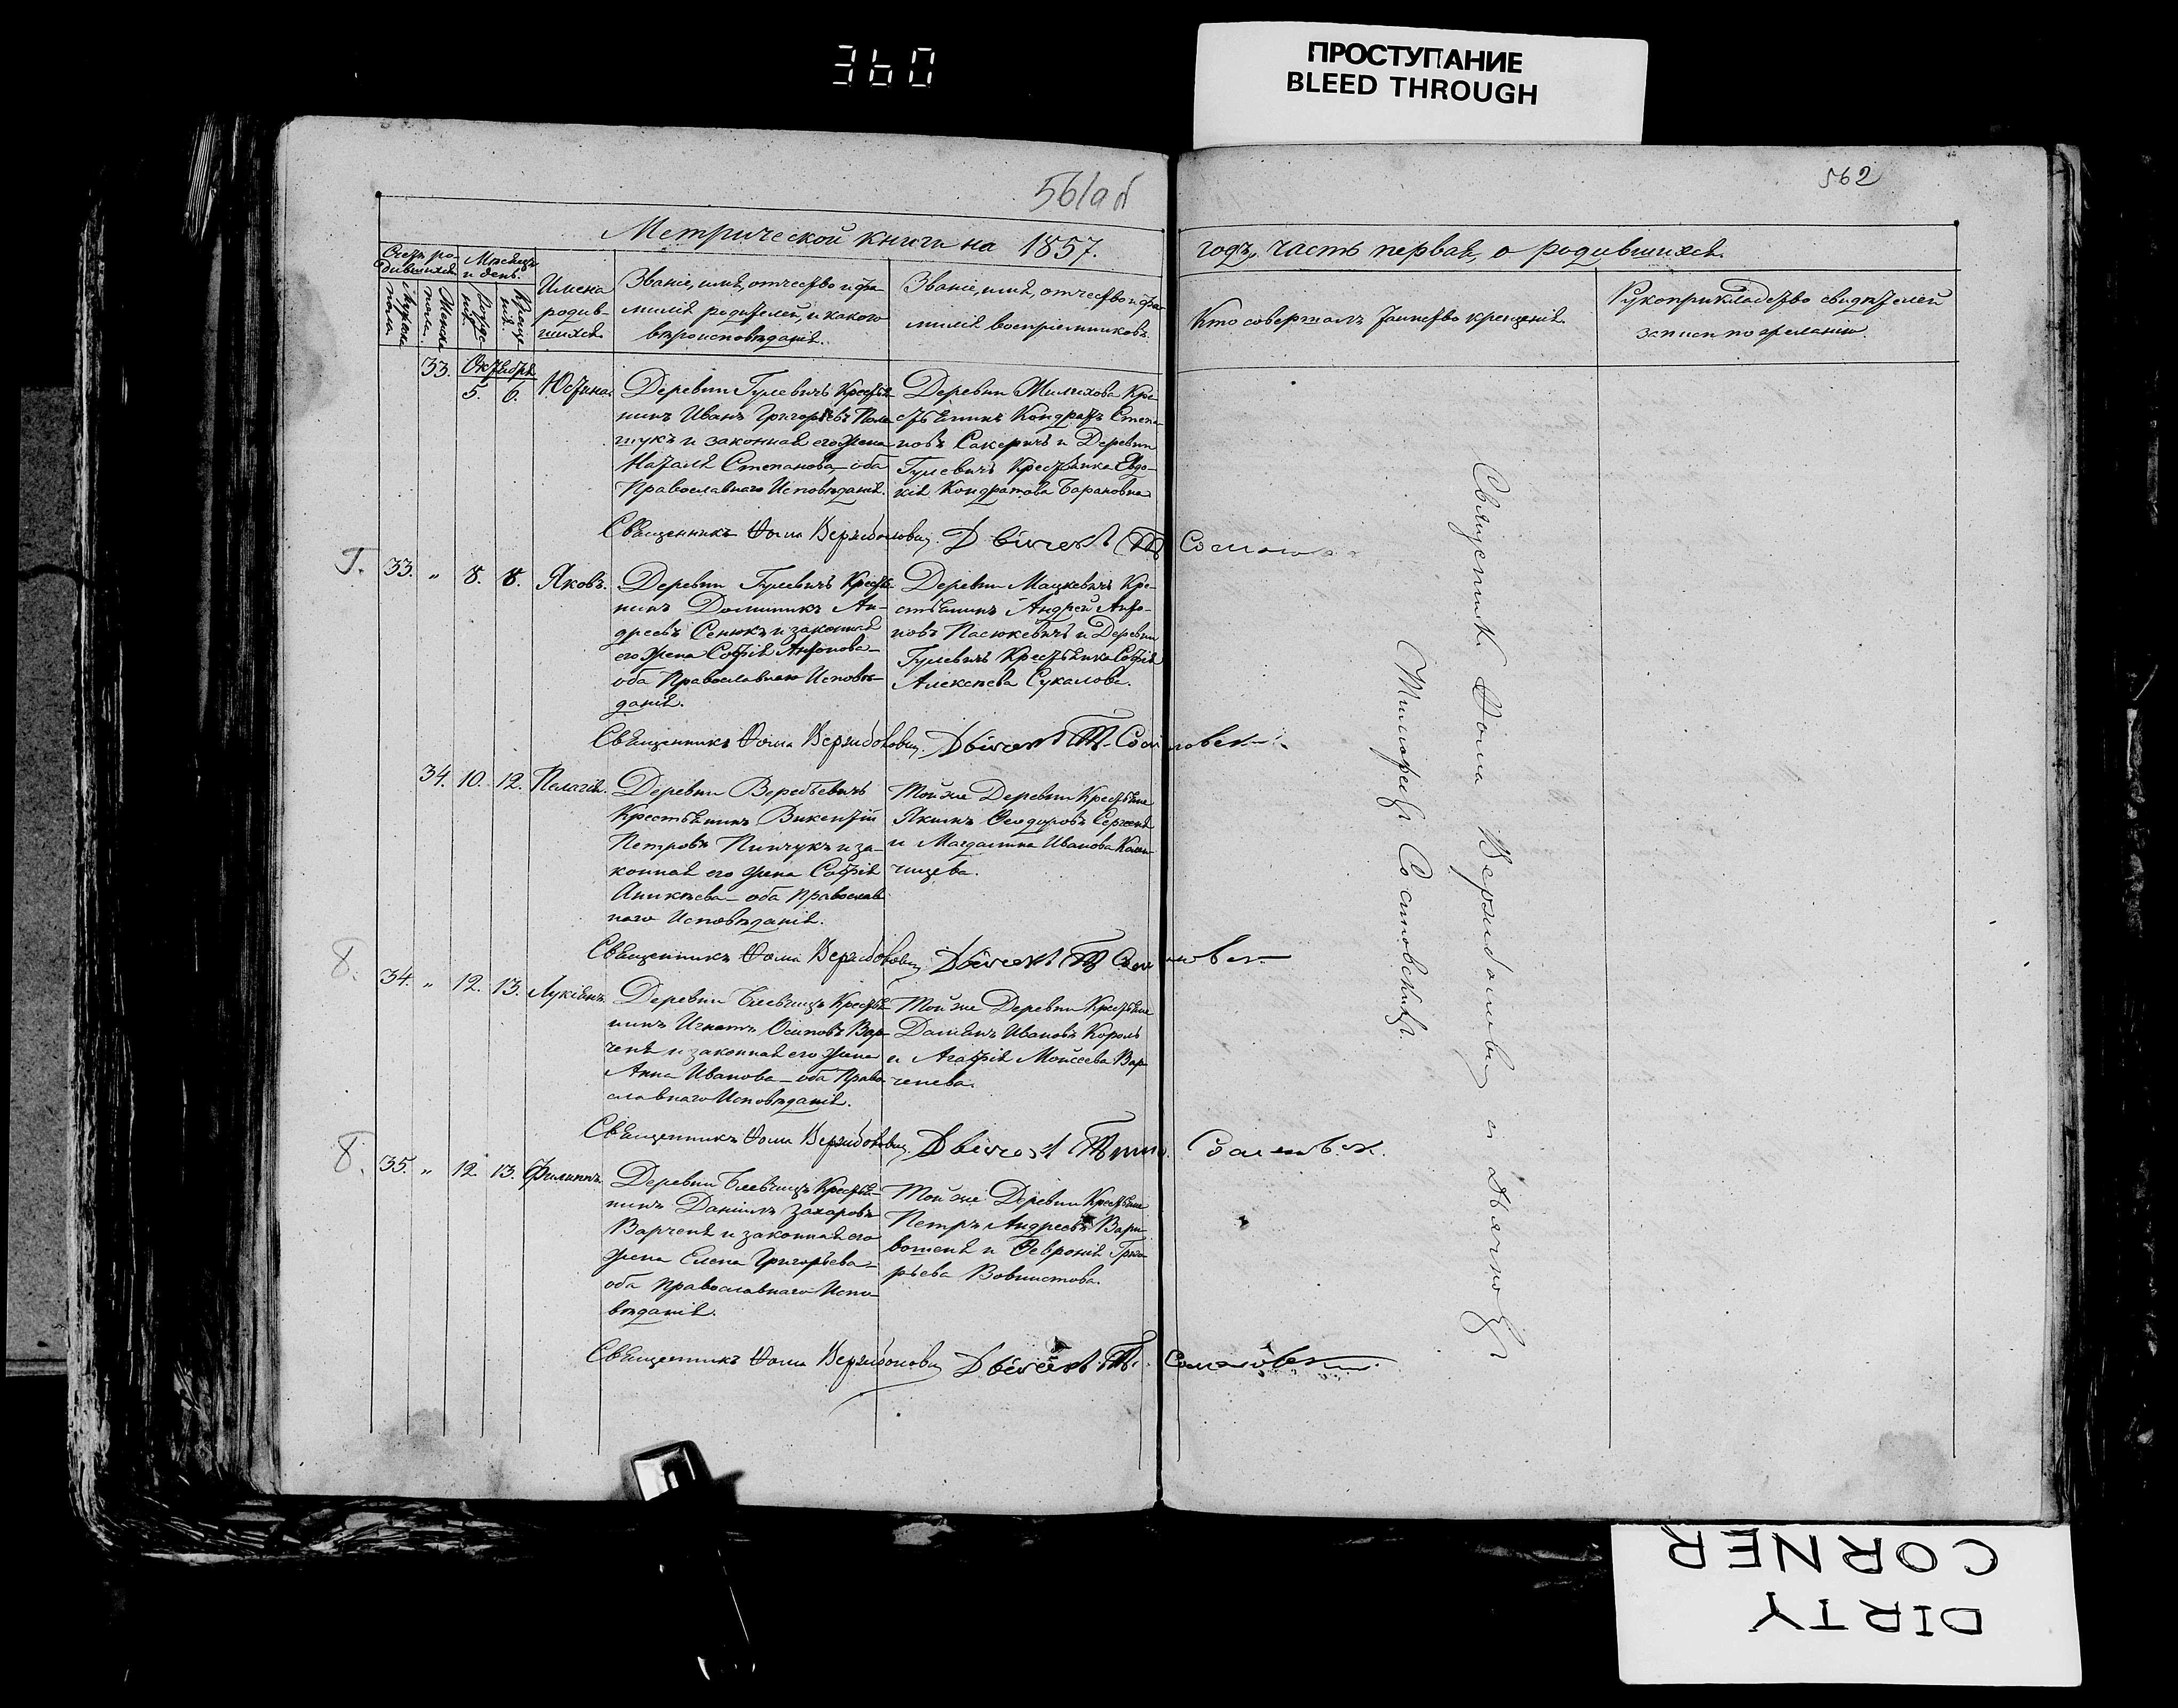 360
ПРОСТУПАНИЕ
BLEED THROUGH
561об
562
Метрической книги на 1857.
годъ, часть первая, о родившихся.
Счетъ родившихся
Мужеска пола.
Женска пола.
Мѣсяцъ и день.
Рожденія.
Крещенія.
Имена
родив-
шихся
Званіе, имя, отчество и фа-
милія родителей, и какого
вѣроисповѣданія.
Званіе, имя, отчество и фа-
милія воспріемниковъ.
Кто совершалъ таинство крещенія.
Рукоприкладство свидѣтелей
записи по желанію.
33. Октября 5. 6. Юстина.
Деревни Гулевичъ Крестья-
нинъ Иванъ Григорьевъ Поле-
щукъ и законная его жена
Наталія Степанова оба
Православнаго Исповѣданія.
Деревни Жилихова Кре-
стьянинъ Кондратъ Степа-
новъ Сакеричъ и Деревни
Гулевичъ Крестьянка Евдо-
кія Кондратова Барановна
Священникъ Ѳома Вержболовичъ. Дьячекъ
33. " 8. 8. Яковъ.
Деревни Гулевичъ Крестья-
нинъ Доминикъ Ан-
дреевъ Сенюкъ и законная
его жена Софія Антонова
оба Православнаго Исповѣ-
данія.
Деревни Мацкевичъ Кре-
стьянинъ Андрей Анто-
новъ Пасюкевичъ и Деревни
Гулевичъ Крестьянка Софія
Алексѣева Сукалова.
Священникъ Ѳома Вержболовичъ. Дьячекъ Т. Сосиновскій
34. 10. 12. Пелагія.
Деревни Веребьевичъ
Крестьянинъ Викентій
Петровъ Пинчукъ и за-
конная его жена Софія
Аникѣева оба Православ-
наго Исповѣданія.
Той же Деревни Крестьяне
Якимъ Ѳеодоровъ
и Магдалина Иванова
Священникъ Ѳома Вержболовичъ Дьячекъ
34. " 12. 13. Лукіанъ.
Деревни Крестья-
нинъ Игнатъ Осиповъ Вар-
ченя и законная его жена
Анна Иванова оба Право-
славнаго Исповѣданія.
Той же Деревни Крестьяне
Даміанъ Ивановъ Король
и Агафія Моисеева Вар-
ченева.
Священникъ Ѳома Вержболовичъ. Дьячекъ
35. " 12 13. Филиппъ.
Деревни Крестья-
нинъ Даніилъ Захаровъ
Варченя и законная его
жена Елена Григорьева
оба Православнаго Испо-
вѣданія.
Той же Деревни Крестьяне
Петръ Андреевъ
и Ѳевронія Григо-
рьева
Священникъ Ѳома Вержболовичъ Дьячекъ
Священникъ Ѳома Вержболовичъ и Дьячокъ
DIRTY
CORNER